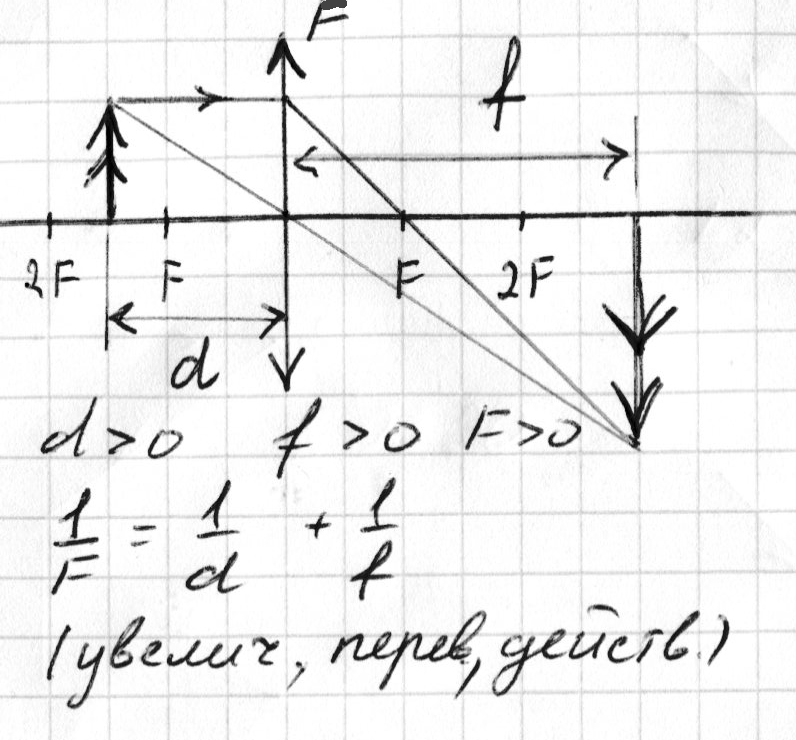 F
f
2F F F 2F
d
d>0 f>0 F>0
1/F = 1/d + 1/f
(увелич, перев, действ.)